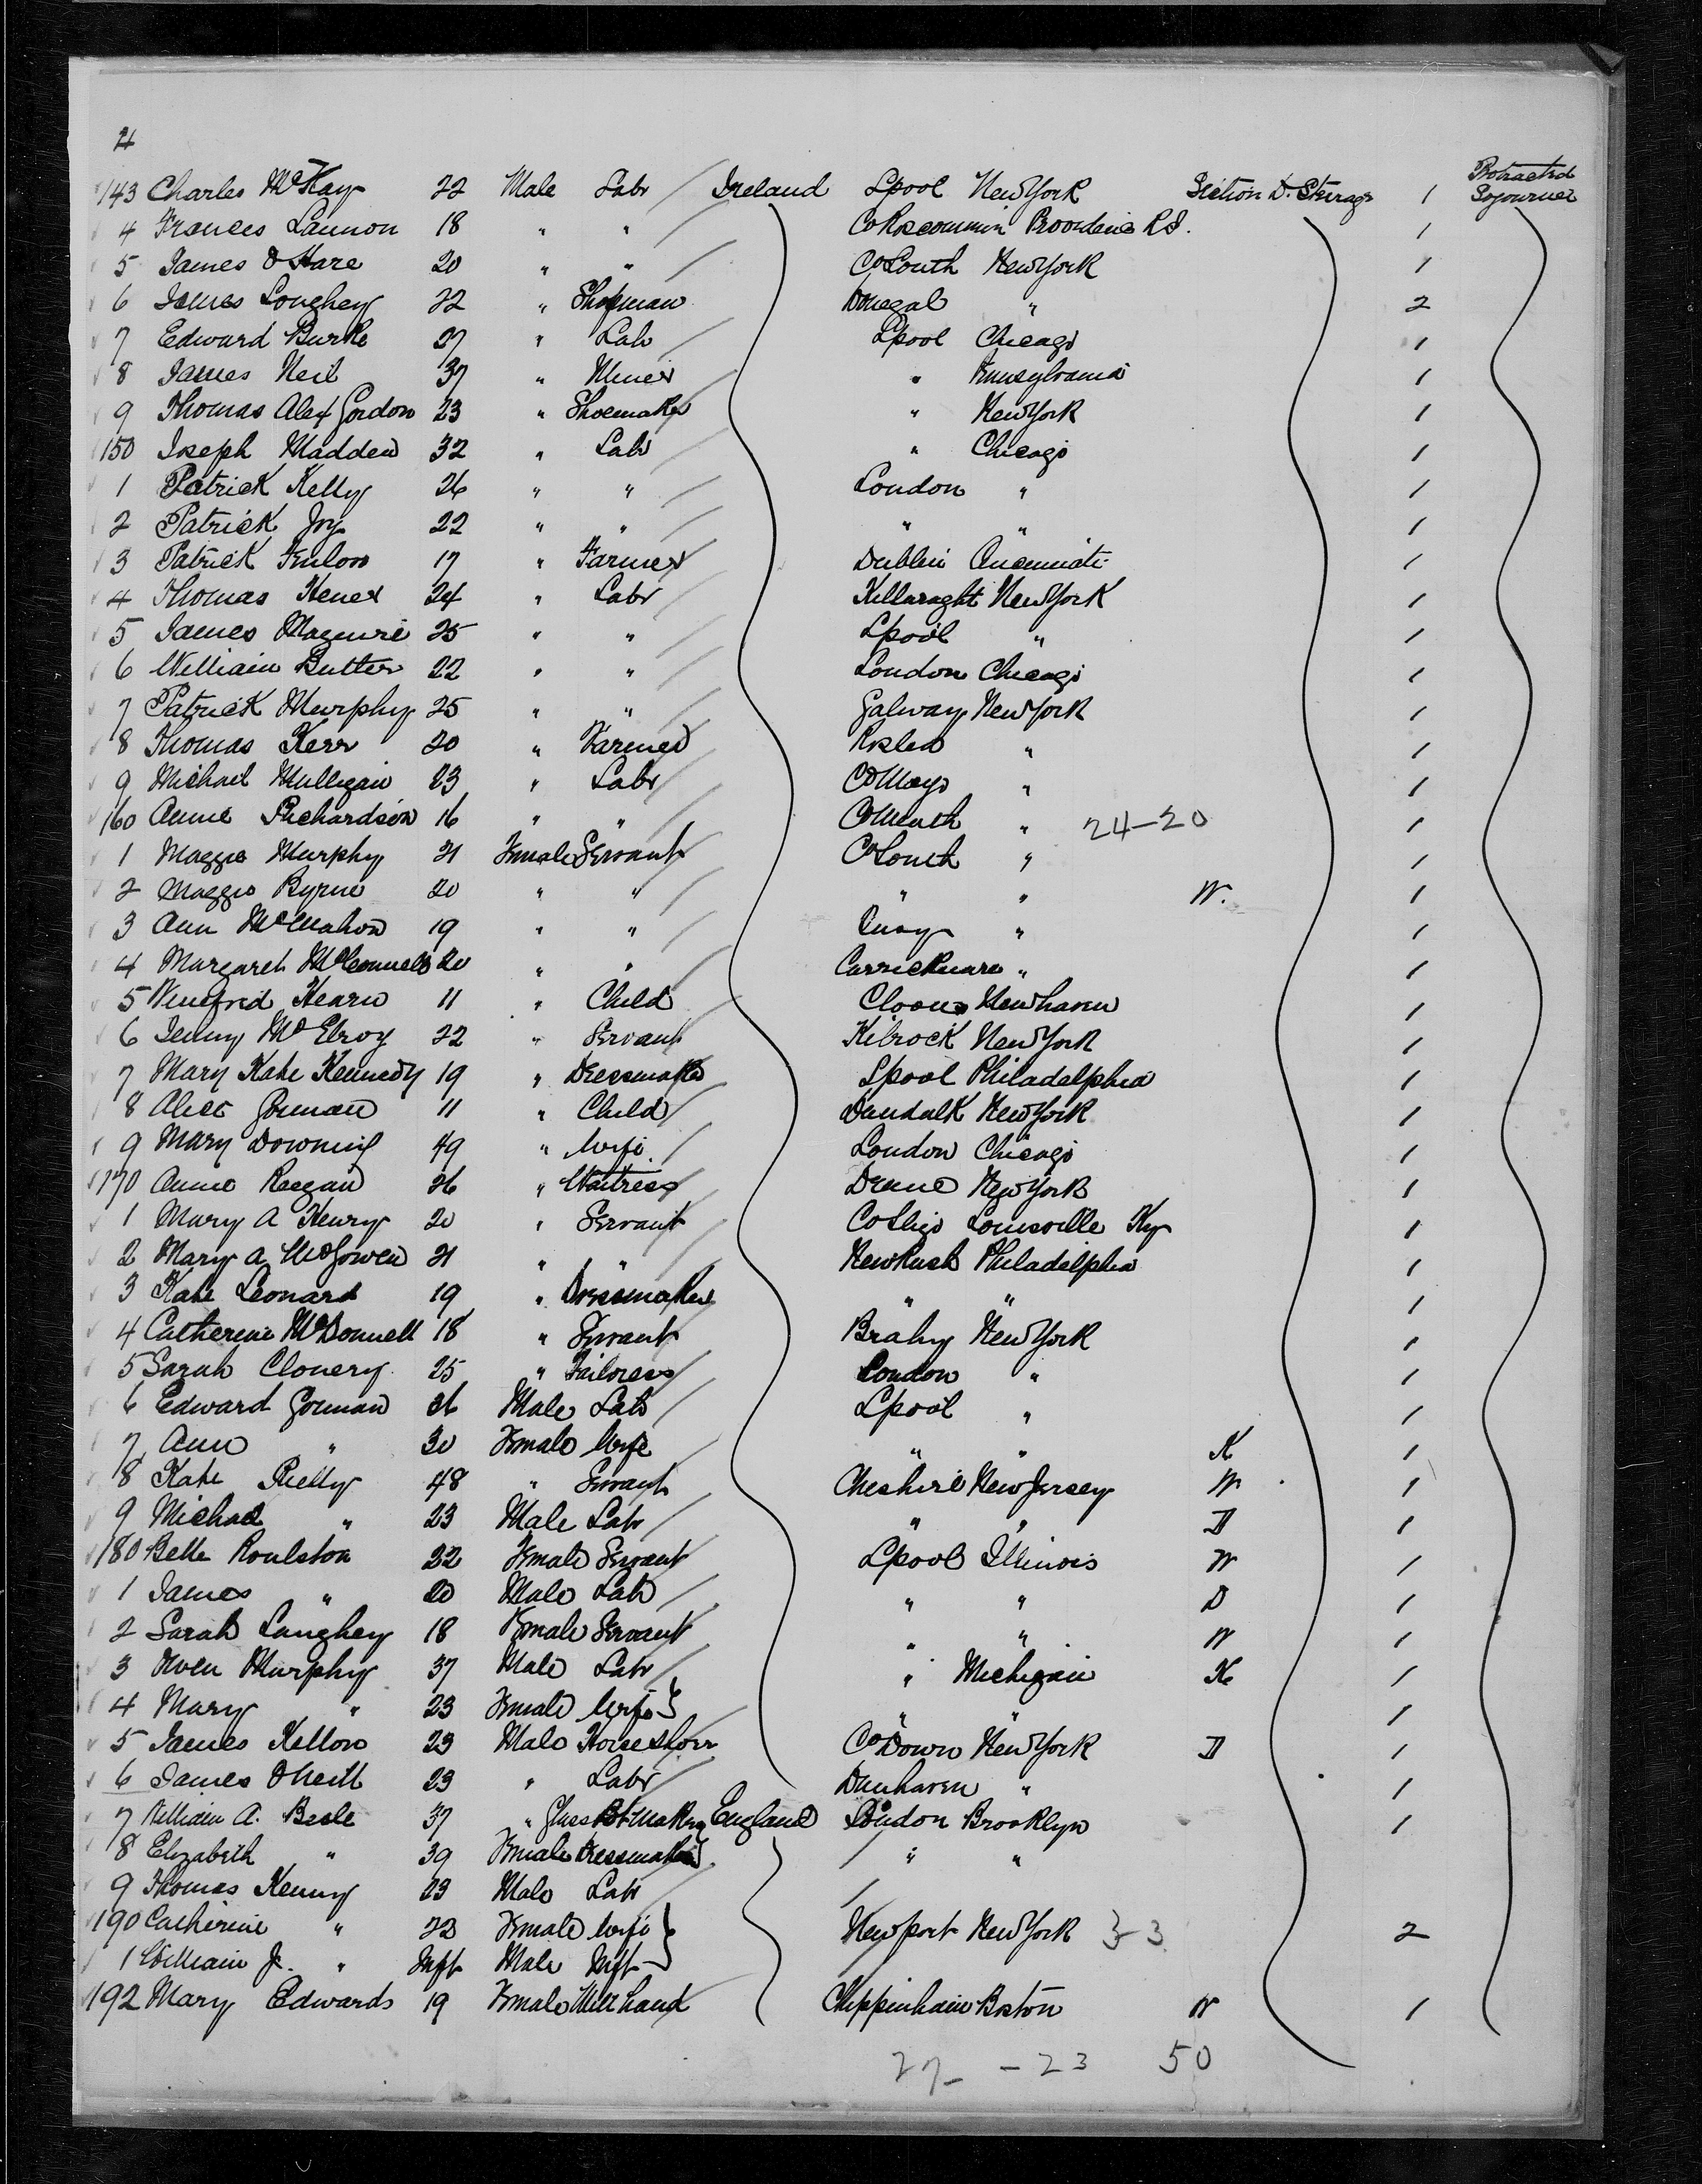 4
143 Charles McKay 22 Male Labr Ireland Lpool New York Section D. Steerage 1 Protracted Sojourner
4 Frances Lannon 18 " " Co Roscommin Providence R.I. 1
5 James O'Hare 20 " " Co Louth New York 1
6 James Loughey 22 " Shopman Donegal " 2
7 Edward Burke 27 " Labr Lpool Chicago 1
8 James Neil 37 " Miner " Pennsylvania 1
9 Thomas Alex Gordon 23 " Shoemaker " New York 1
150 Joseph Madden 32 " Labr " Chicago 1
1 Patrick Kelly 26 " " London " 1
2 Patrick Joy 22 " " " " 1
3 Patrick 17 " Farmer Dublin Cincinnati 1
4 Thomas 24 " Labr Killaraght New York 1
5 James Maguire 25 " " Lpool " 1
6 William Butler 22 " " London Chicago 1
7 Patrick Murphy 25 " " Galway New York 1
8 Thomas Kerr 20 " Farmer " 1
9 Michael Mulligan 23 " Labr Co Mayo " 1
160 Annie Richardson 16 " " Co Meath " 24-20 1
1 Maggie Murphy 21 Female Servant Co Louth " 1
2 Maggie Byrne 20 " " " " W. 1
3 Ann McMahon 19 " " " 1
4 Margaret McConnell 20 " " " 1
5 Winifred Hearn 11 " Child Cloone Newhaven 1
6 Jenny McElroy 22 " Servant Kilrock New York 1
7 Mary Kate Kennedy 19 " Dressmaker Lpool Philadelphia 1
8 Alice Gorman 11 " Child Dundalk New York 1
9 Mary Downing 49 " Wife London Chicago 1
170 Annie Reegan 26 " Waitress New York 1
1 Mary A Henry 20 " Servant Co Sligo Louisville Ky 1
2 Mary A McGowen 21 " " Philadelphia 1
3 Kate Leonard 19 " Dressmaker " " 1
4 Catherine McDonnell 18 " Servant New York 1
5 Sarah Clonery 25 " Tailoress London " 1
6 Edward Gorman 26 Male Labr Lpool " 1
7 Ann " 30 Female Wife " " K 1
8 Kate Rielly 48 " Servant Cheshire New Jersey W 1
9 Michael " 23 Male Labr " " D 1
180 Belle Roulston 22 Female Servant Lpool Illinois W 1
1 James " 20 Male Labr " " D 1
2 Sarah Laughey 18 Female Servant " " W 1
3 Owen Murphy 37 Male Labr " Michigan K 1
4 Mary " 23 Female Wife " " 1
5 James Kellow 23 Male Horse Shoer Co Down New York D 1
6 James O'Neill 23 " Labr Dunhaven " 1
7 William A. 37 " England London Brooklyn 1
8 Elizabeth " 39 Female Dressmaker " "
9 Thomas Kenny 23 Male Labr
190 Catherine " 22 Female Wife Newport New York 3-3 2
1 William J. " Inft Male Inft
192 Mary Edwards 19 Female Mill hand Chippenhain Boston W 1
27- -23 50